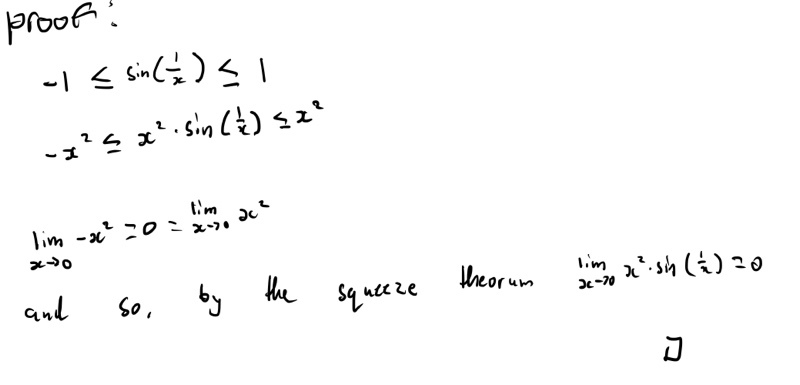 proof:
-1 ≤ sin(1/x) ≤ 1
-x² ≤ x² · sin(1/x) ≤ x²
lim x→0 -x² = 0 = lim x→0 x²
and so, by the squeeze theorum lim x→0 x² · sin(1/x) = 0
□